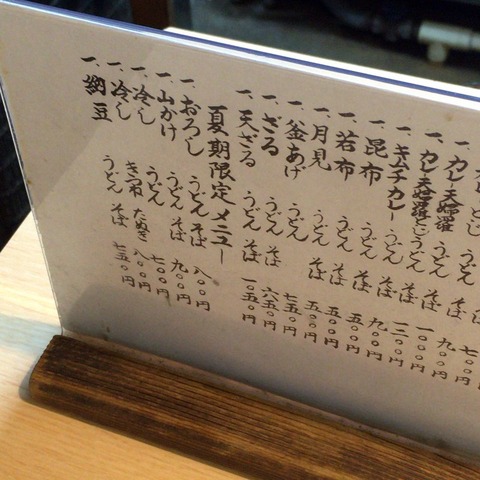 とじ うどん そば
一、カレー天婦羅 うどん そば
一、カレー天婦羅とじ うどん そば
一、キムチカレー うどん そば 九〇〇円
一、昆布 うどん そば 五五〇円
一、若布 うどん そば 五五〇円
一、月見 うどん そば 五五〇円
一、釜あげ うどん 七五〇円
一、ざる うどん そば 六五〇円
一、天ざる うどん そば 一〇五〇円
夏期限定メニュー
一、おろし うどん そば 八〇〇円
一、山かけ うどん そば 九〇〇円
一、冷し うどん そば 七〇〇円
一、冷し きつね たぬき 八〇〇円
一、納豆 うどん そば 七五〇円